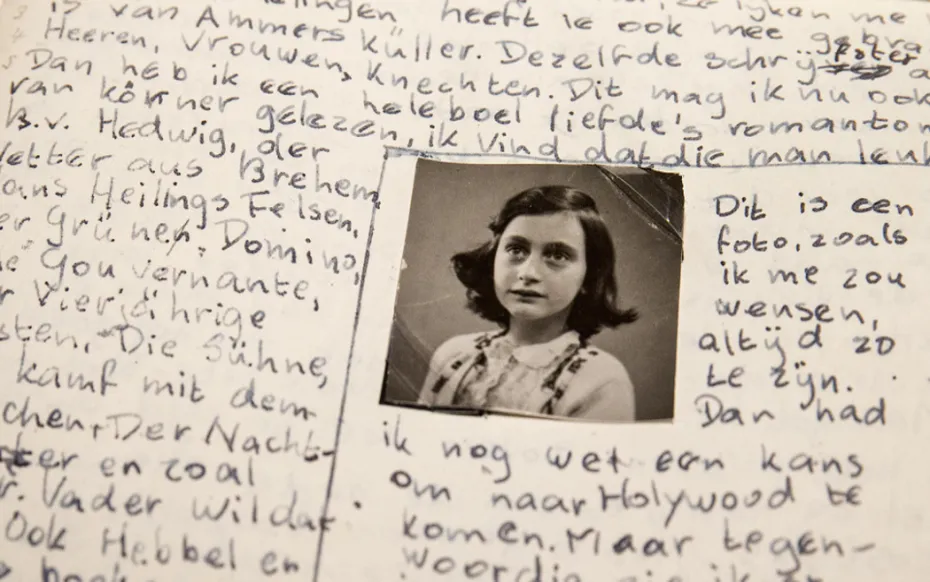 heeft ie ook mee
is van Ammers Küller. Dezelfde schrijfster
Heeren, Vrouwen, Knechten. Dit mag ik nu ook
Dan heb ik een heleboel liefde's roman
van körner gelezen, ik vind dat die man
B.v. Hedwig, der
Vetter aus Brehem,
Hans Heilings Felsen,
Der Grünen Domino,
Gouvernante,
Vierjährige
Die Sühne,
kamf mit dem
chen, Der Nacht-
en zoal
Vader wil dat
Ook Hebbel en
Dit is een
foto, zoals
ik me zou
wensen,
altijd zo
te zijn.
Dan had
ik nog wel een kans
om naar Holywood te
komen. Maar tegen-
woordig